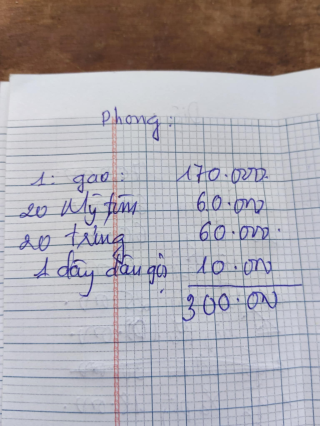 Phong:
1: gao: 170.000
20 Mỳ tôm 60.000
20 trứng 60.000.
1 dây dầu gội 10.000
300.000